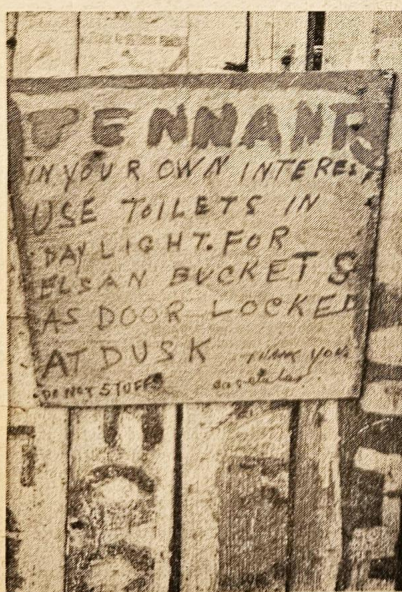 TENNANTS
IN YOUR OWN INTEREST
USE TOILETS IN
DAYLIGHT. FOR
ELSAN BUCKETS
AS DOOR LOCKED
AT DUSK
THANK YOU
DO NOT STUFF